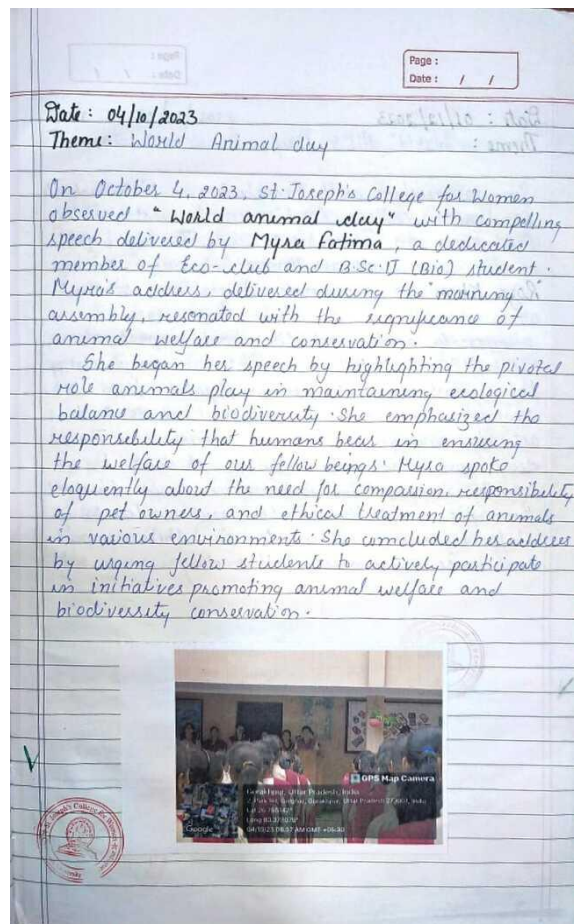 Page :
Date : / /
Date: 04/10/2023
Theme: World Animal day
On October 4, 2023, St. Joseph's College for Women
observed "World animal day" with compelling
speech delivered by Myra Fatima, a dedicated
member of Eco-club and B.Sc. II (Bio) student.
Myra's address, delivered during the morning
assembly, resonated with the significance of
animal welfare and conservation.
She began her speech by highlighting the pivotal
role animals play in maintaining ecological
balance and biodiversity. She emphasized the
responsibility that humans bear in ensuring
the welfare of our fellow beings. Myra spoke
eloquently about the need for compassion, responsibility
of pet owners, and ethical treatment of animals
in various environments. She concluded her address
by urging fellow students to actively participate
in initiatives promoting animal welfare and
biodiversity conservation.
GPS Map Camera
Gorakhpur, Uttar Pradesh, India
Gorakhpur, Uttar Pradesh 273001, India
Google
04/10/23 08:37 AM GMT +05:30